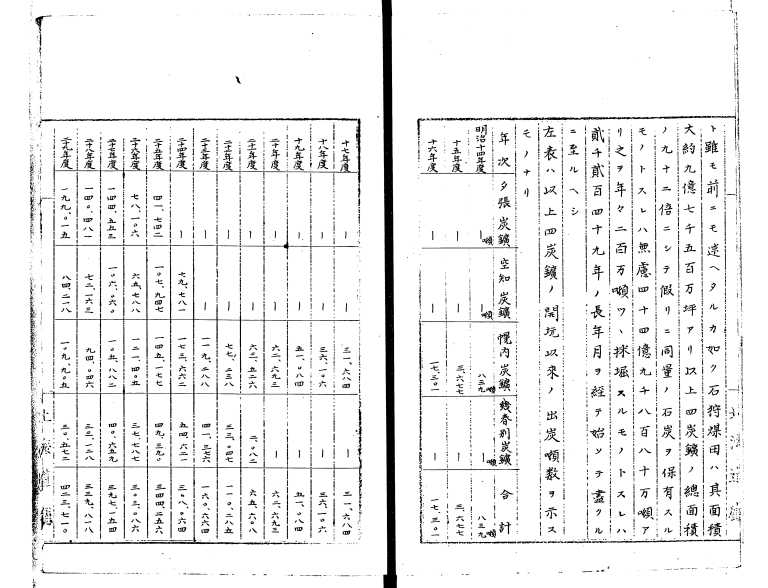 ト雖モ前ニモ述ヘタルカ如ク石狩煤田ハ其面積
大約九億七千五百万坪アリ以上四炭鑛ノ總面積
ノ九十二倍ニシテ假リニ同量ノ石炭ヲ保有スル
モノトスレハ無慮四十四億九千八百八十万噸ア
リ之ヲ年々二百万噸ツヽ採堀スルモノトスレハ
貳千貳百四十九年ノ長年月ヲ経テ始メテ盡クル
ニ至ルヘシ
左表ハ以上四炭鑛ノ開坑以來ノ出炭噸数ヲ示ス
モノナリ
年次 夕張炭鑛 空知炭鑛 幌内炭鑛 幾春別炭鑛 合計
明治十四年度 ー噸 ー噸 八三九噸 ー噸 八三九噸
十五年度 ー ー 三、六七七 ー 三、六七七
十六年度 ー ー 一七、三〇一 ー 一七、三〇一
十七年度 ー ー 三一、六八四 ー 三一、六八四
十八年度 ー ー 三六、一〇六 ー 三六、一〇六
十九年度 ー ー 五一、〇八四 ー 五一、〇八四
二十年度 ー ー 六二、六九三 ー 六二、六九三
二十一年度 ー ー 六三、五二六 二、〇八二 六五、六〇八
二十二年度 ー ー 七七、二三八 三三、〇四七 一一〇、二八五
二十三年度 ー ー 一一九、二八八 四一、三七六 一六〇、六六四
二十四年度 ー 七九、七八一 一七三、六六二 五四、六二一 三〇八、〇六四
二十五年度 四一、七四二 一〇七、九四七 一四五、一七七 四九、三九〇 三四四、二五六
二十六年度 七八、一〇六 六五、七八八 一二一、四〇五 三七、七八七 三〇三、〇八六
二十七年度 一四四、五五三 一〇六、〇六〇 一〇五、八八二 四〇、六五九 三九七、一五四
二十八年度 一四〇、四八一 七二、一六三 九四、〇四六 三三、一二八 三三九、八一八
二十九年度 一九九、〇一五 八四、二一八 一〇九、九〇五 三〇、五七二 四二三、七一〇